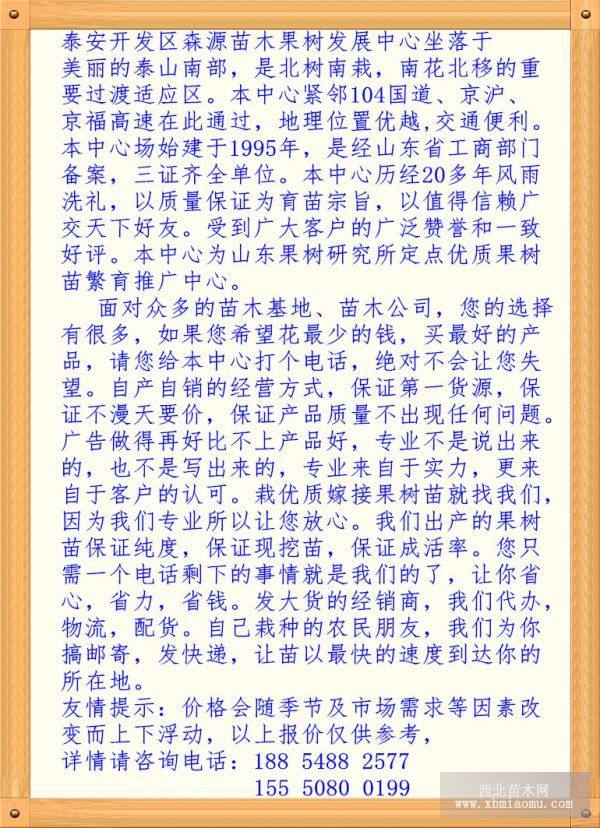 泰安开发区森源苗木果树发展中心坐落于
美丽的泰山南部，是北树南栽，南花北移的重
要过渡适应区。本中心紧邻104国道、京沪、
京福高速在此通过，地理位置优越,交通便利。
本中心场始建于1995年，是经山东省工商部门
备案，三证齐全单位。本中心历经20多年风雨
洗礼，以质量保证为育苗宗旨，以值得信赖广
交天下好友。受到广大客户的广泛赞誉和一致
好评。本中心为山东果树研究所定点优质果树
苗繁育推广中心。
面对众多的苗木基地、苗木公司，您的选择
有很多，如果您希望花最少的钱，买最好的产
品，请您给本中心打个电话，绝对不会让您失
望。自产自销的经营方式，保证第一货源，保
证不漫天要价，保证产品质量不出现任何问题。
广告做得再好比不上产品好，专业不是说出来
的，也不是写出来的，专业来自于实力，更来
自于客户的认可。栽优质嫁接果树苗就找我们，
因为我们专业所以让您放心。我们出产的果树
苗保证纯度，保证现挖苗，保证成活率。您只
需一个电话剩下的事情就是我们的了，让你省
心，省力，省钱。发大货的经销商，我们代办，
物流，配货。自己栽种的农民朋友，我们为你
搞邮寄，发快递，让苗以最快的速度到达你的
所在地。
友情提示：价格会随季节及市场需求等因素改
变而上下浮动，以上报价仅供参考，
详情请咨询电话：188 5488 2577
155 5080 0199
西北苗木网
www.xbmiaomu.com